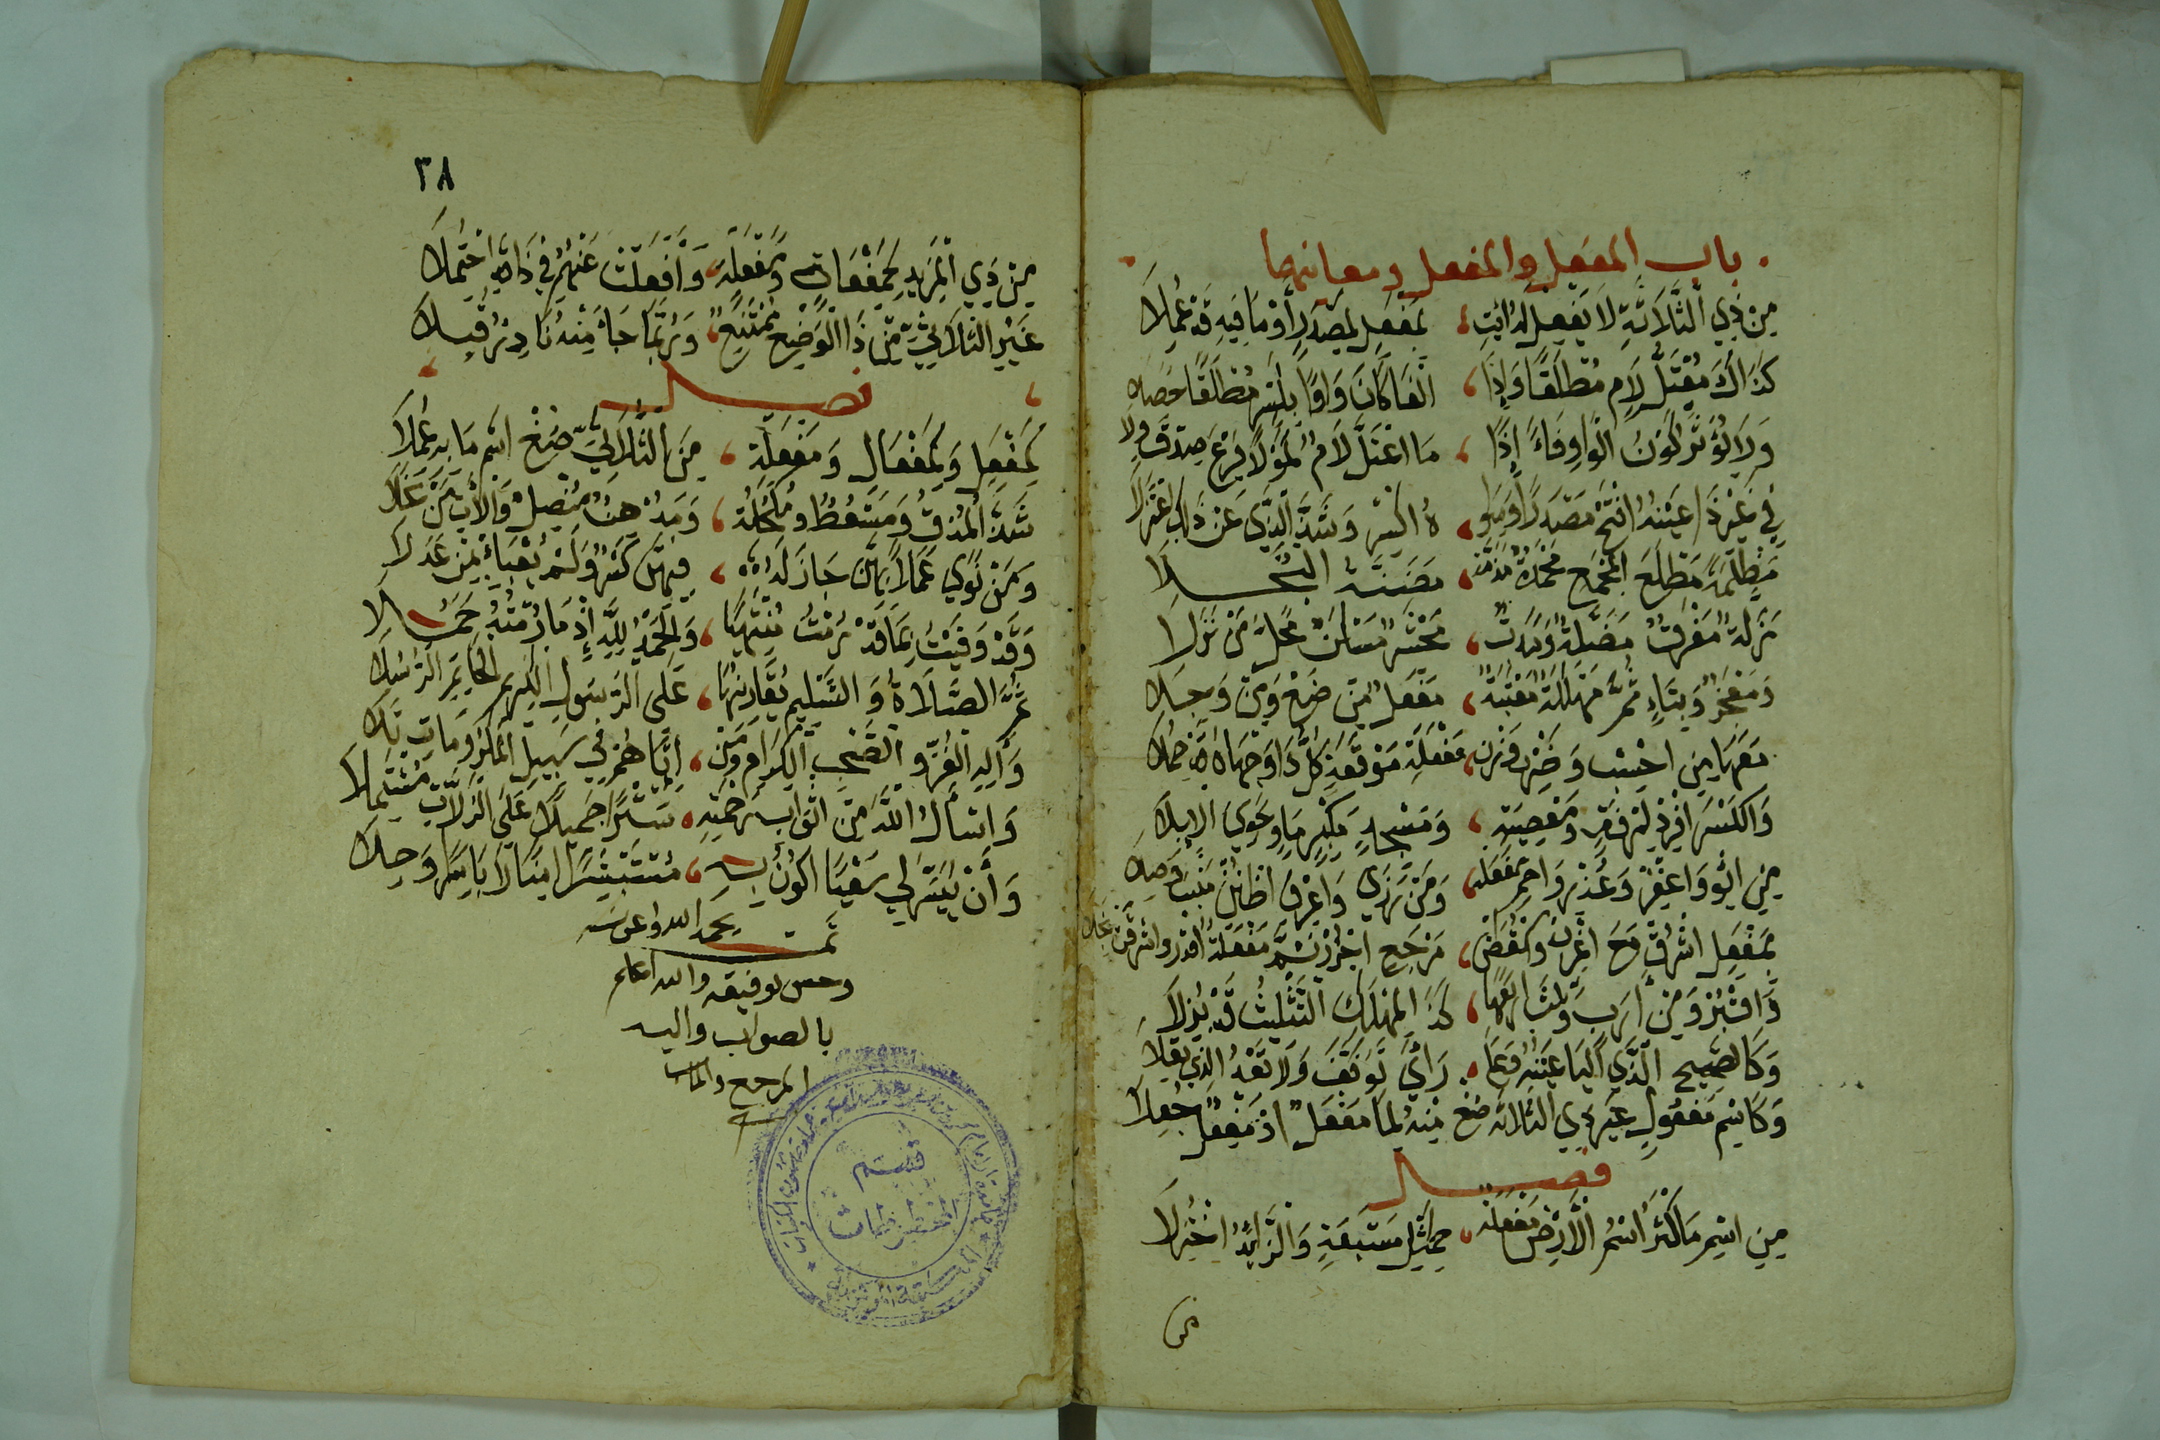 باب المفعَل والمفعِل ومعانيهما
مِنْ ذِي الثَّلَاثَةِ لَا يَفْعِلْ لَهُ ائْتِ بِمَفْعَلٍ لِمَصْدَرٍ أَوْ مَا فِيهِ قَدْ عُمِلَا
كَذَاكَ مُعْتَلُّ لَامٍ مُطْلَقًا وَإِذَا الْفَا كَانَ وَاوًا بِكَسْرٍ مُطْلَقًا حَصَلَا
وَلَا يُؤَثِّرُ كَوْنُ الْوَاوِ فَاءً إِذَا مَا اعْتَلَّ لَامٌ كَمَوْلًا فَارْعَ صِدْقَ وِلَا
فِي غَيْرِ ذَا عَيْنَهُ افْتَحْ مَصْدَرًا وَسِوَاهُ اكْسِرْ وَشَذَّ الَّذِي عَنْ ذَلِكَ اعْتَزَلَا
مَظْلِمَةٌ مَطْلَعُ الْمَجْمَعِ مَحْمَدَةٌ مَذَمَّةٌ مَضَنَّةُ الْبُخَلَا
مَزَلَّةٌ مَفْرَقٌ مَضَلَّةٌ وَمَدَبٌّ مَحْشَرٌ مَسْكَنٌ مَحَلُّ مَنْ نَزَلَا
وَمَعْجَزٌ وَبِتَاءٍ ثُمَّ مَهْلَكَةٌ مَعْتَبَةٌ مَفْعَلٌ مِنْ ضَعْ وَمِنْ وَجِلَا
مَعْهَا مِنِ احْسِبْ وَضَرْبٍ وَزْنُ مَفْعَلَةٍ مَوْقَعَةٍ كُلُّ ذَا وَجْهَاهُ قَدْ حُمِلَا
وَالْكَسْرَ افْرِدْ لِمَرْفِقٍ وَمَعْصِيَةٍ وَمَسْجِدٍ مَكْبِرٍ مَأْوٍ حَوَى الْإِبِلَا
مِنِ ائْوِ وَاغْفِرْ وَعُذْرٍ وَاحْمِ مَفْعِلَةً وَمَنْ رَزَى وَاعْرِفَ اظْنُنْ مَنْبِتٌ وُصِلَا
بِمَفْعِلِ اشْرُقْ مَعَ اغْرُبْ وَاسْقُطَنْ مَرْجِعِ اجْزُرْ ثُمَّ مَفْعَلَةُ اقْدِرْ وَاشْرُقَنْ نَخَلَا
ذَا اقْبُرْ وَمِنْ أَرَبٍ وَثَلِّثْ أَرْبَعَهَا كَذَا لِمَهْلَكٍ التَّثْلِيثُ قَدْ بُذِلَا
وَكَالصَّحِيحِ الَّذِي الْيَا عَيْنُهُ وَعَلَى رَأْيٍ تَوَقَّفْ وَلَا تَعْدُ الَّذِي نُقِلَا
وَكَاسْمِ مَفْعُولِ غَيْرِ ذِي الثَّلَاثَةِ صُغْ مِنْهُ لِمَا مَفْعَلٌ أَوْ مَفْعِلٌ جُعِلَا
فصل
مِنِ اسْمِ مَا كَثُرَ اسْمُ الْأَرْضِ مَفْعَلَةٌ كَمِثْلِ مَسْبَعَةٍ وَالزَّائِدُ اخْتُزِلَا
من
٣٨
مِنْ ذِي الْمَزِيدِ كَمَفْعَاةٍ وَمَفْعَلَةٌ وَأَفْعَلَتْ عَنْهُمُ فِي ذَاكَ احْتُمِلَا
غَيْرَ الثُّلَاثِيِّ مِنْ ذَا الْوَضْعِ مُمْتَنِعٌ وَرُبَّمَا جَاءَ مِنْهُ نَادِرٌ قُبِلَا
فصل
كَمِفْعَلٍ وَكَمِفْعَالٍ وَمِفْعَلَةٍ مِنَ الثُّلَاثِيِّ صُغْ اسْمَ مَا بِهِ عُمِلَا
شَذَّ الْمُدُقُّ وَمُسْعُطٌ وَمُكْحُلَةٌ وَمُدْهُنٌ مُنْصُلٌ وَالْآتِ مَنْ نَخَلَا
وَمَنْ نَوَى عَمَلًا بِهِنَّ جَازَ لَهُ فِيهِنَّ كَسْرٌ وَلَمْ يَعْبَأْ بِمَنْ عَذَلَا
وَقَدْ وَفَيْتُ بِمَا قَدْ رُمْتُ مُنْتَهِيًا وَالْحَمْدُ لِلَّهِ إِذْ مَا رُمْتُهُ كَمُلَا
ثُمَّ الصَّلَاةُ وَالتَّسْلِيمُ يُقَارِنُهَا عَلَى الرَّسُولِ الْكَرِيمِ الْخَاتِمِ الرُّسُلَا
وَآلِهِ الْغُرِّ وَالصَّحْبِ الْكِرَامِ وَمَنْ إِيَّاهُمُ فِي سَبِيلِ الْمَكْرُمَاتِ تَلَا
وَأَسْأَلُ اللَّهَ مِنْ أَثْوَابِ رَحْمَتِهِ سِتْرًا جَمِيلًا عَلَى الزَّلَّاتِ مُشْتَمِلَا
وَأَنْ يُيَسِّرَ لِي سَعْيًا أَكُونُ بِهِ مُسْتَبْشِرًا آمِنًا لَا بَاسِرًا وَجِلَا
تمت بحمد الله وعونه
وحسن توفيقه والله اعلم
بالصواب واليه
المرجع والمآب
قسم
المخطوطات